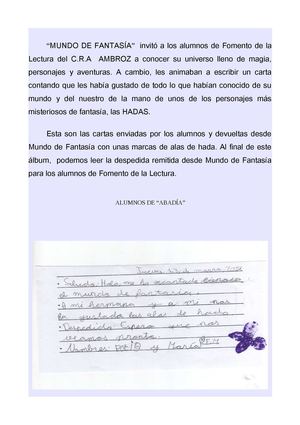 “MUNDO DE FANTASÍA” invitó a los alumnos de Fomento de la
Lectura del C.R.A AMBROZ a conocer su universo lleno de magia,
personajes y aventuras. A cambio, les animaban a escribir un carta
contando que les había gustado de todo lo que habían conocido de su
mundo y del nuestro de la mano de unos de los personajes más
misteriosos de fantasía, las HADAS.
Esta son las cartas enviadas por los alumnos y devueltas desde
Mundo de Fantasía con unas marcas de alas de hada. Al final de este
álbum, podemos leer la despedida remitida desde Mundo de Fantasía
para los alumnos de Fomento de la Lectura.
ALUMNOS DE “ABADÍA”
Jueves, de marzo,
Saludo: Hola me ha encantado
el mundo de fantasía.
A mi hermana y a mi nos
ha gustado las alas de hada
Despedida: Espero que nos
veamos pronto.
Nombres: y María